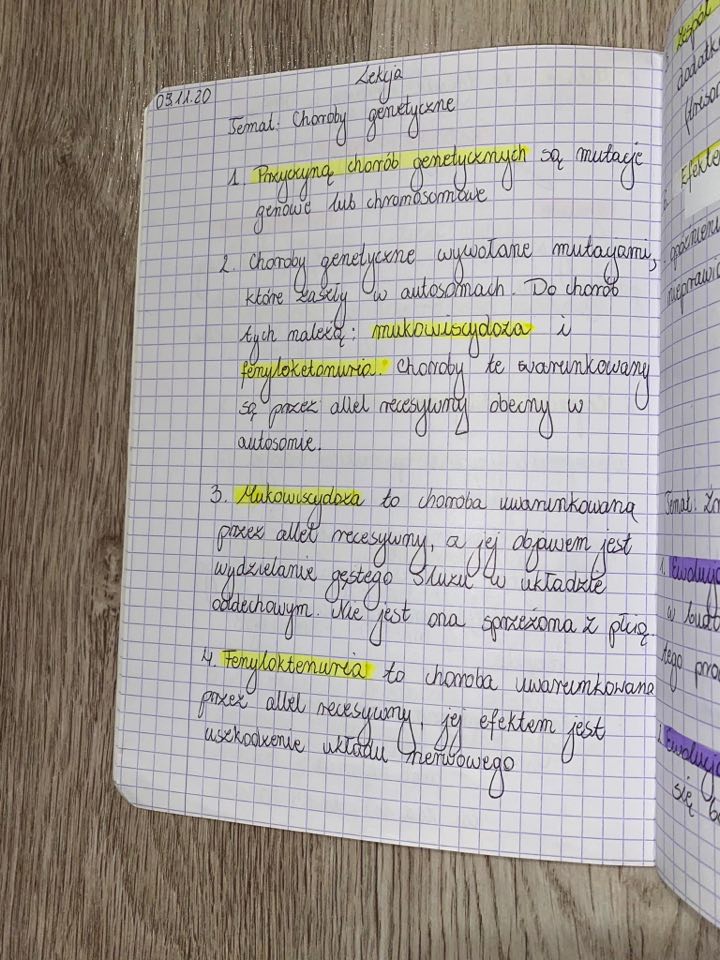 Lekcja
03.11.20
Temat: Choroby genetyczne
1. Przyczyną chorób genetycznych są mutacje
genowe lub chromosomowe
2. Choroby genetyczne wywołane mutacjami,
które zaszły w autosomach. Do chorób
tych należą: mukowiscydoza i
fenyloketonuria. Choroby te warunkowany
są przez allel recesywny obecny w
autosomie.
3. Mukowiscydoza to choroba uwarunkowaną
przez allel recesywny, a jej objawem jest
wydzielanie gęstego śluzu w układzie
oddechowym. Nie jest ona sprzężona z płcią.
4. Fenyloktenuria to choroba uwarunkowana
przez allel recesywny, jej efektem jest
uszkodzenie układu nerwowego
Zespół
dodatko
Efekte
opóźnieni
nieprawid
Temat: Zm
1. Ewolucja
w bud
tego pro
2. Ewolucja
się b